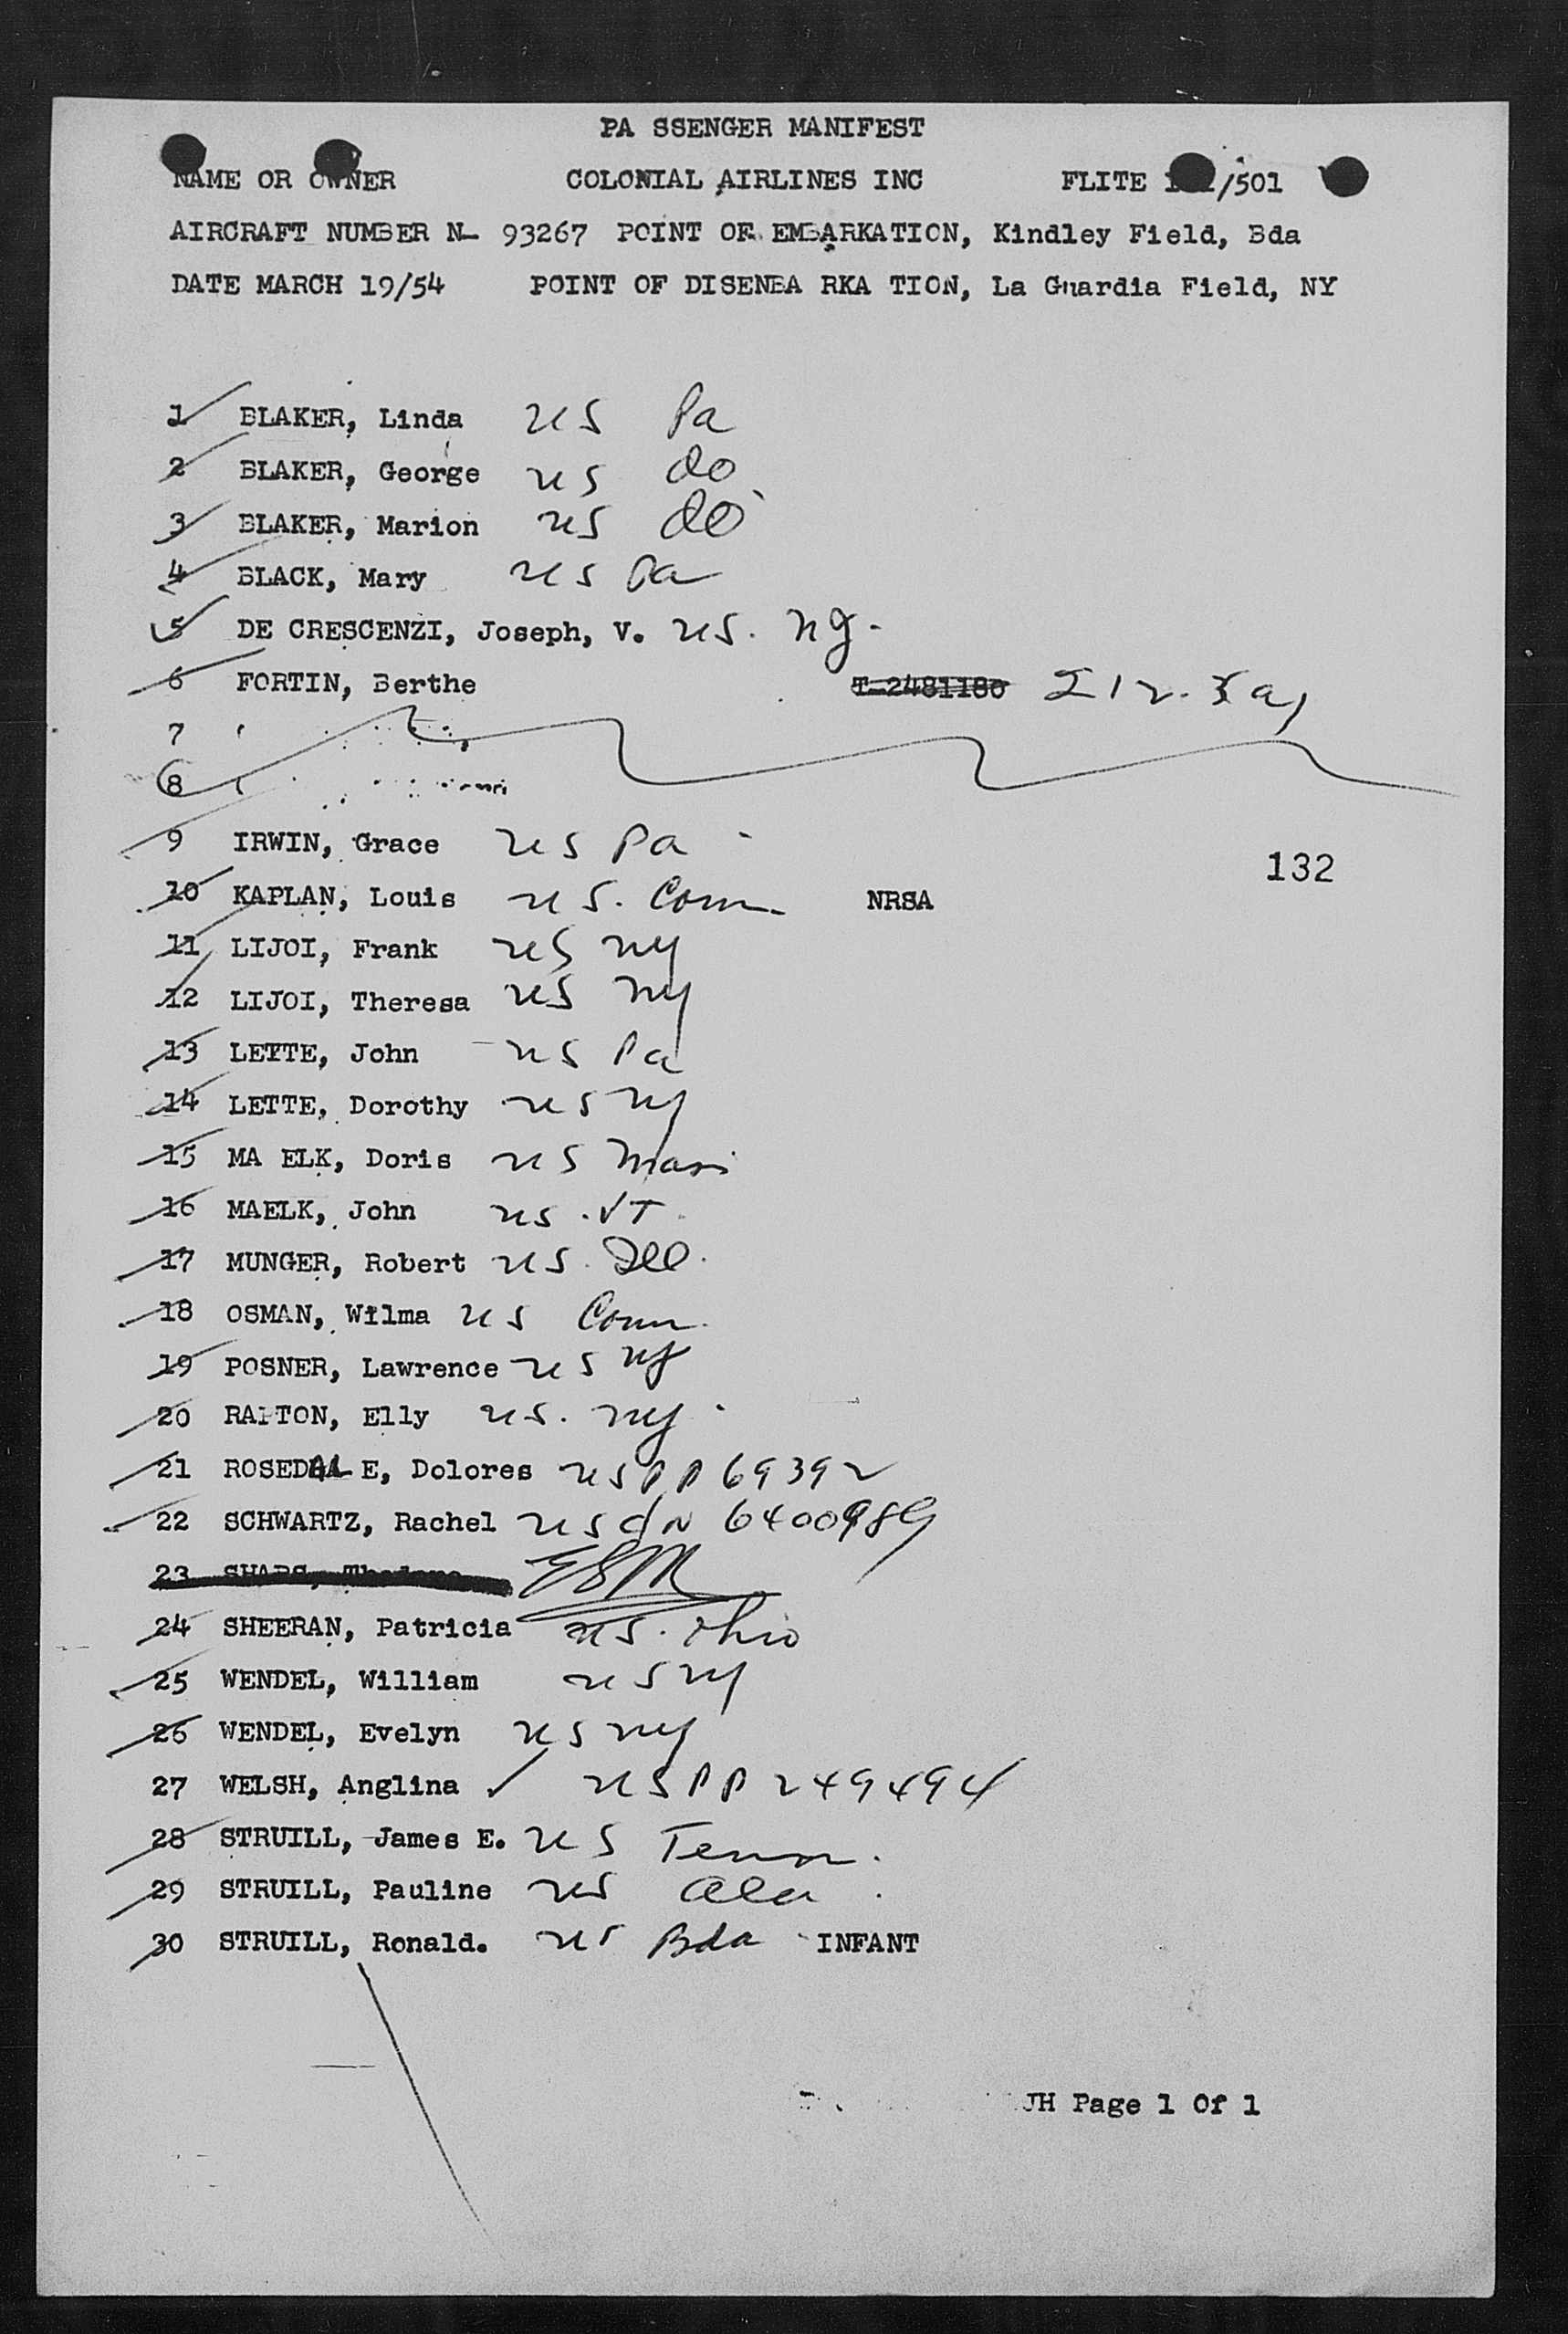 PA SSENGER MANIFEST
NAME OR OWNER COLONIAL AIRLINES INC FLITE /501
AIRCRAFT NUMBER N- 93267 POINT OF EMBARKATION, Kindley Field, Bda
DATE MARCH 19/54 POINT OF DISENBA RKA TION, La Guardia Field, NY
1 BLAKER, Linda US Pa
2 BLAKER, George US do
3 BLAKER, Marion US do
4 BLACK, Mary US Pa
5 DE CRESCENZI, Joseph, V. US. NJ.
6 FORTIN, Berthe T-2481180
7
8
9 IRWIN, Grace US Pa
132
10 KAPLAN, Louis US. Conn. NRSA
11 LIJOI, Frank US NY
12 LIJOI, Theresa US NY
13 LETTE, John US Pa
14 LETTE, Dorothy US NY
15 MA ELK, Doris US Mass
16 MAELK, John US. VT.
17 MUNGER, Robert US. Ill.
18 OSMAN, Wilma US Conn.
19 POSNER, Lawrence US NY
20 Elly US. NY
21 ROSEDALE, Dolores US PP 69392
22 SCHWARTZ, Rachel US 6400989
23 ESM
24 SHEERAN, Patricia US. Ohio
25 WENDEL, William US NY
26 WENDEL, Evelyn US NY
27 WELSH, Anglina ✓ US PP 249494
28 STRUILL, James E. US Tenn.
29 STRUILL, Pauline US Ala.
30 STRUILL, Ronald. US Bda INFANT
JH Page 1 Of 1